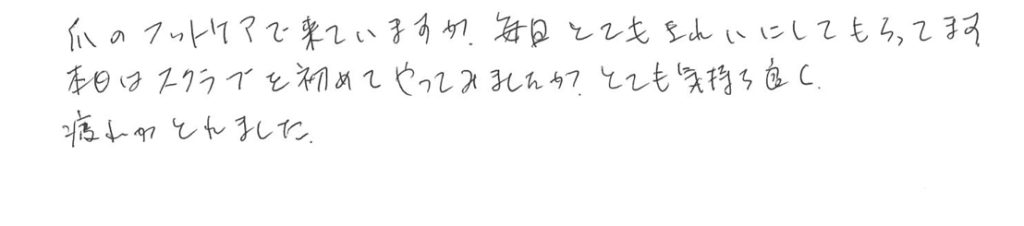 爪のフットケアで来ていますが、毎日とてもきれいにしてもらってます
本日はスクラブを初めてやってみましたが、とても気持ち良く、
疲れがとれました。